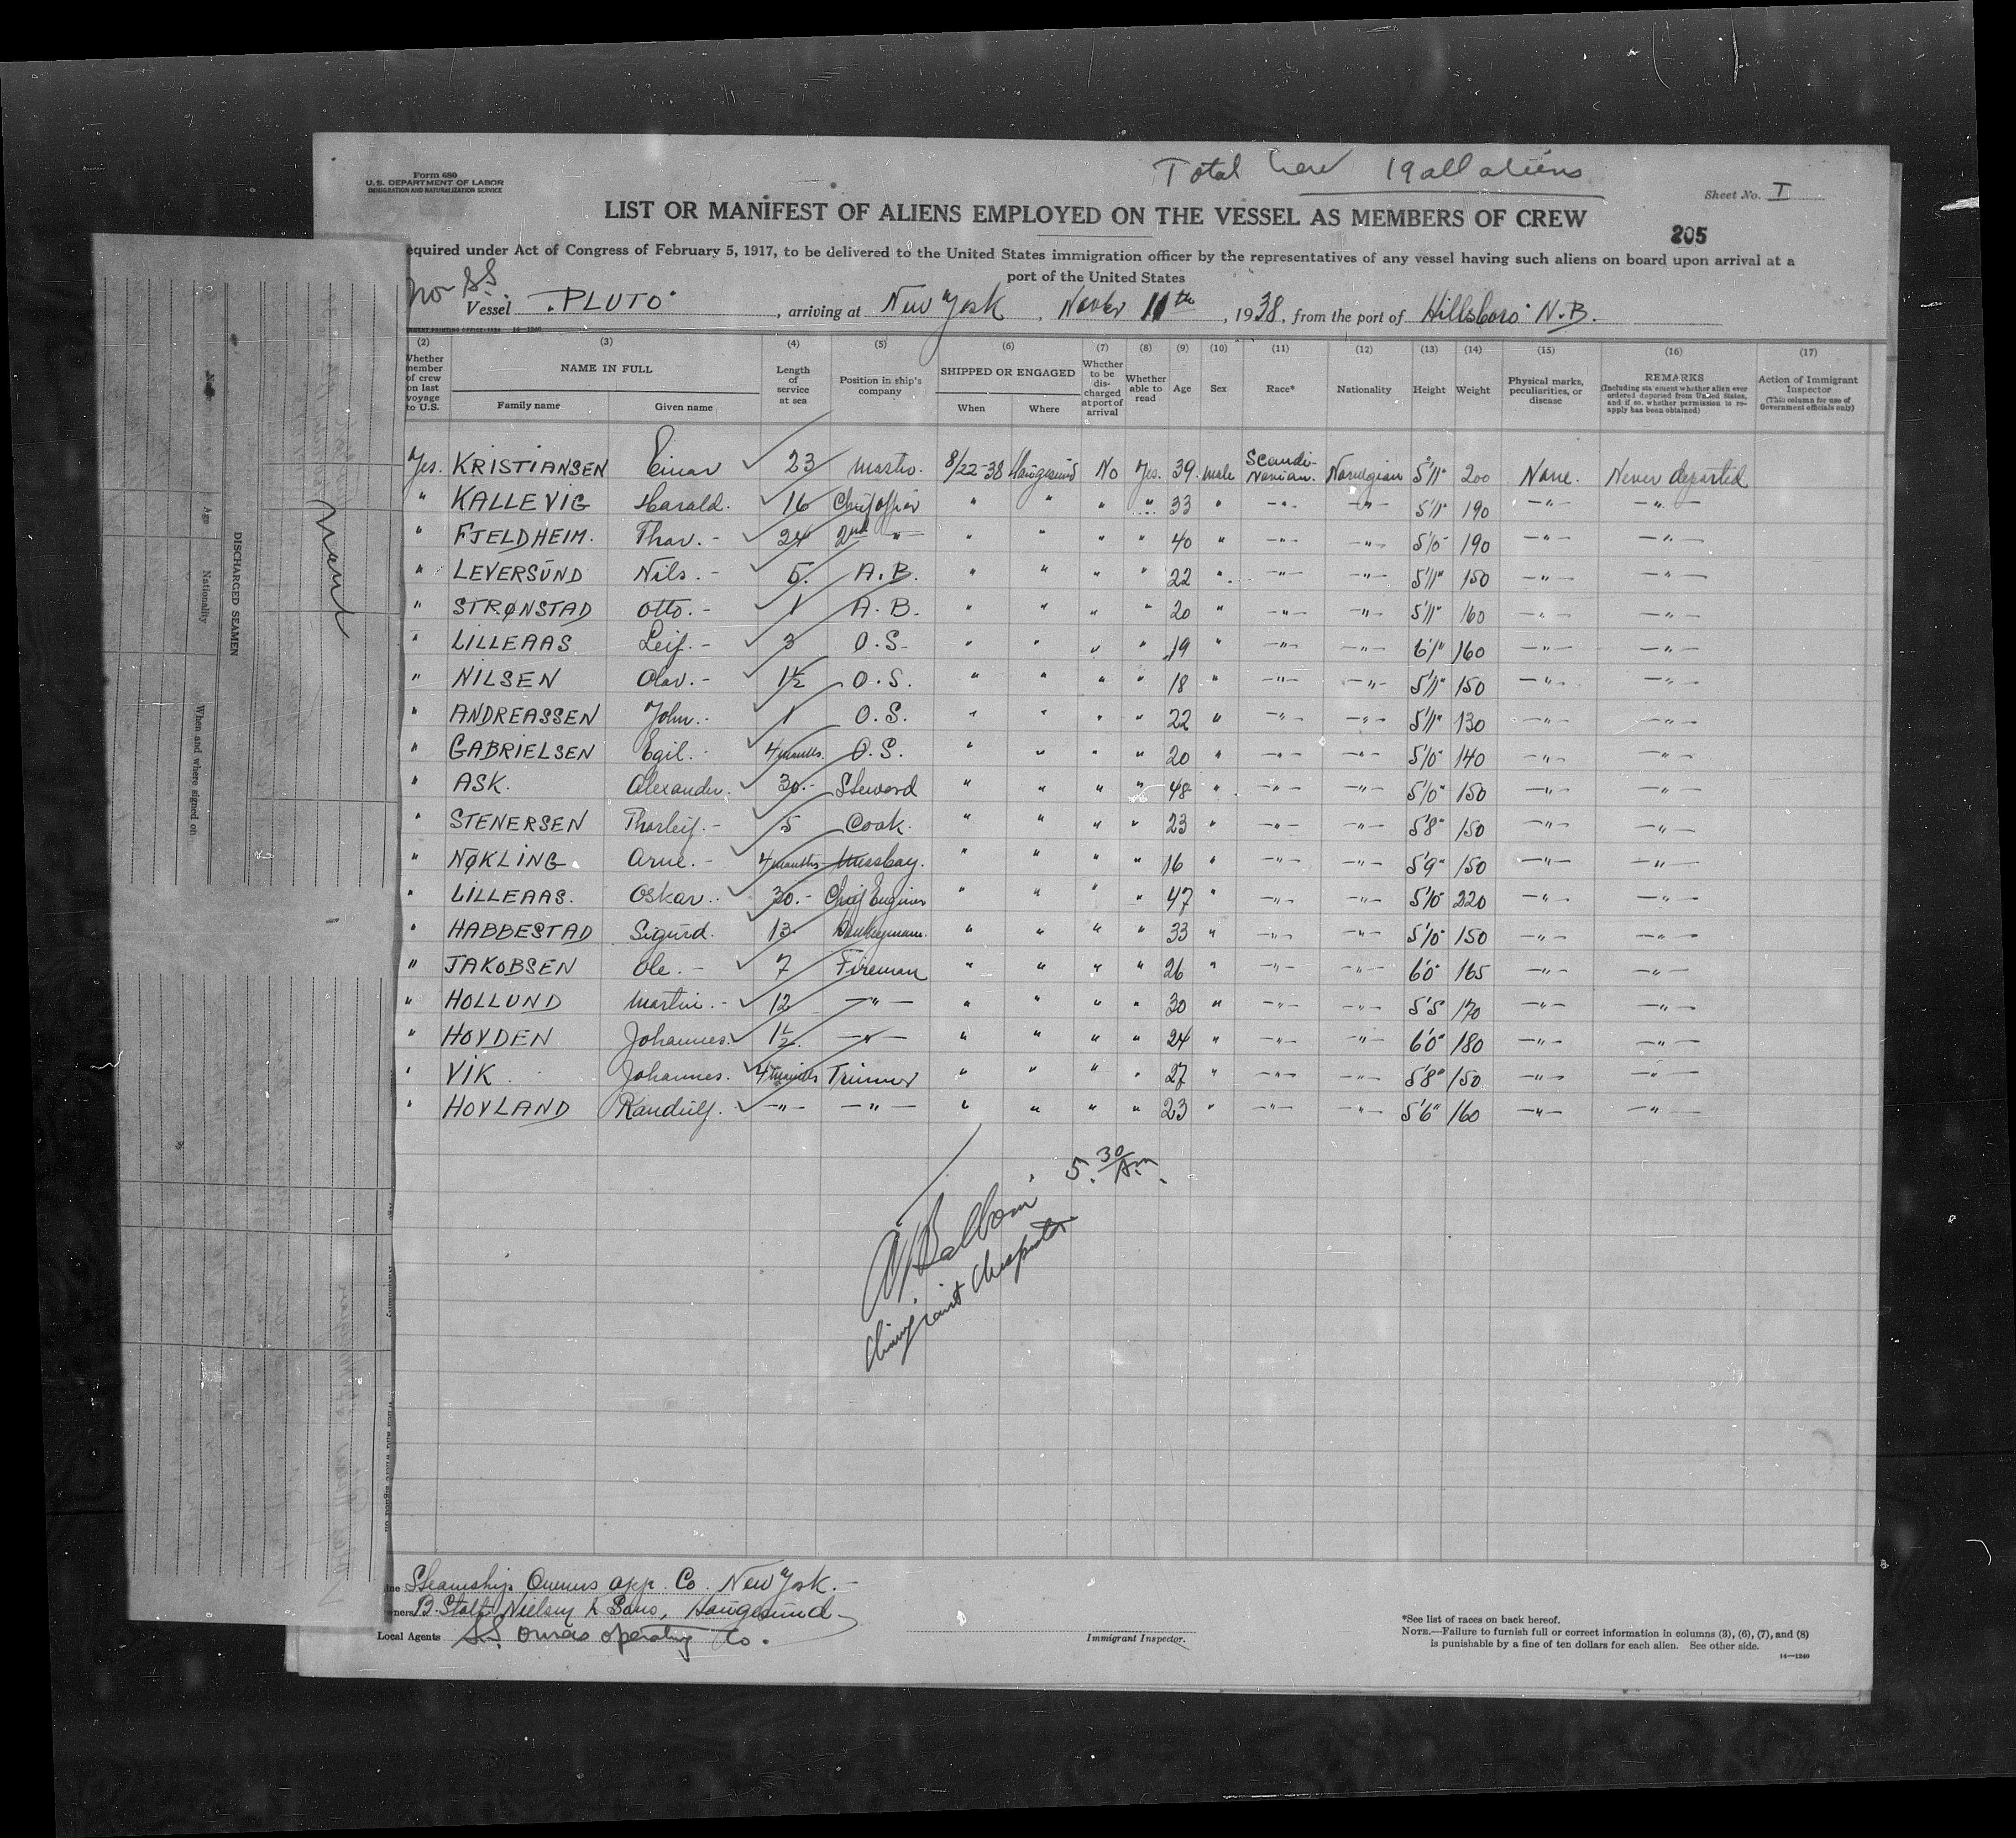 Total crew 19 all aliens
Form 680
U.S. DEPARTMENT OF LABOR
IMMIGRATION AND NATURALIZATION SERVICE
Sheet No. I
LIST OR MANIFEST OF ALIENS EMPLOYED ON THE VESSEL AS MEMBERS OF CREW
205
equired under Act of Congress of February 5, 1917, to be delivered to the United States immigration officer by the representatives of any vessel having such aliens on board upon arrival at a
port of the United States
Nor SS.
Vessel "PLUTO", arriving at New York, Novber 11th, 1938, from the port of Hillsboro N.B.
(2) (3) (4) (5) (6) (7) (8) (9) (10) (11) (12) (13) (14) (15) (16) (17)
Whether member of crew on last voyage to U.S. NAME IN FULL Family name Given name Length of service at sea Position in ship's company SHIPPED OR ENGAGED When Where Whether to be discharged at port of arrival Whether able to read Age Sex Race* Nationality Height Weight Physical marks, peculiarities, or disease REMARKS (Including statement whether alien ever ordered deported from United States, and if so, whether permission to reapply has been obtained) Action of Immigrant Inspector (This column for use of Government officials only)
Yes. KRISTIANSEN Einar 23 Master. 8/22-38 Haugesund No Yes. 39. male Scandinavian. Norwegian 5'11" 200 None. Never deported
" KALLEVIG Harald. 16 Chief officer " " " " 33 " -"- -"- 5'11" 190 -"- -"-
" FJELDHEIM. Thor. - 24 2nd -"- " " " " 40 " -"- -"- 5'10" 190 -"- -"-
" LEVERSUND Nils. - 5. A.B. " " " " 22 " -"- -"- 5'11" 150 -"- -"-
" STRØNSTAD Otto. - 1 A.B. " " " " 20 " -"- -"- 5'11" 160 -"- -"-
" LILLEAAS Leif. - 3 O.S. " " " " 19 " -"- -"- 6'1" 160 -"- -"-
" NILSEN Olav. - 1½ O.S. " " " " 18 " -"- -"- 5'11" 150 -"- -"-
" ANDREASSEN John. - 1 O.S. " " " " 22 " -"- -"- 5'11" 130 -"- -"-
" GABRIELSEN Egil. - 4 months. O.S. " " " " 20 " -"- -"- 5'10" 140 -"- -"-
" ASK. Alexander. 30.- Steward " " " " 48 " -"- -"- 5'10" 150 -"- -"-
" STENERSEN Thorleif. - 5 Cook. " " " " 23 " -"- -"- 5'8" 150 -"- -"-
" NØKLING Arne. - 4 months Messboy. " " " " 16 " -"- -"- 5'9" 150 -"- -"-
" LILLEAAS. Oskar. 30.- Chief Engineer " " " " 47 " -"- -"- 5'10" 220 -"- -"-
" HABBESTAD Sigurd. 13 Donkeyman. " " " " 33 " -"- -"- 5'10" 150 -"- -"-
" JAKOBSEN Ole. - 7 Fireman " " " " 26 " -"- -"- 6'0" 165 -"- -"-
" HOLLUND Martin. - 12 -"- " " " " 30 " -"- -"- 5'5 170 -"- -"-
" HOYDEN Johannes. 1½. -"- " " " " 24 " -"- -"- 6'0" 180 -"- -"-
" VIK Johannes. 4 months Trimmer " " " " 27 " -"- -"- 5'8" 150 -"- -"-
" HOVLAND Randulf. -"- -"- " " " " 23 " -"- -"- 5'6" 160 -"- -"-
5.30 A.m.
Immigrant Inspector
Steamship Owners Opp. Co. New York. -
B. Stolt-Nielsen & Sons, Haugesund
Local Agents SS Owners operating Co.
Immigrant Inspector.
*See list of races on back hereof.
NOTE.—Failure to furnish full or correct information in columns (3), (6), (7), and (8)
is punishable by a fine of ten dollars for each alien. See other side.
14—1240
DISCHARGED SEAMEN
Age
Nationality
When and where signed on